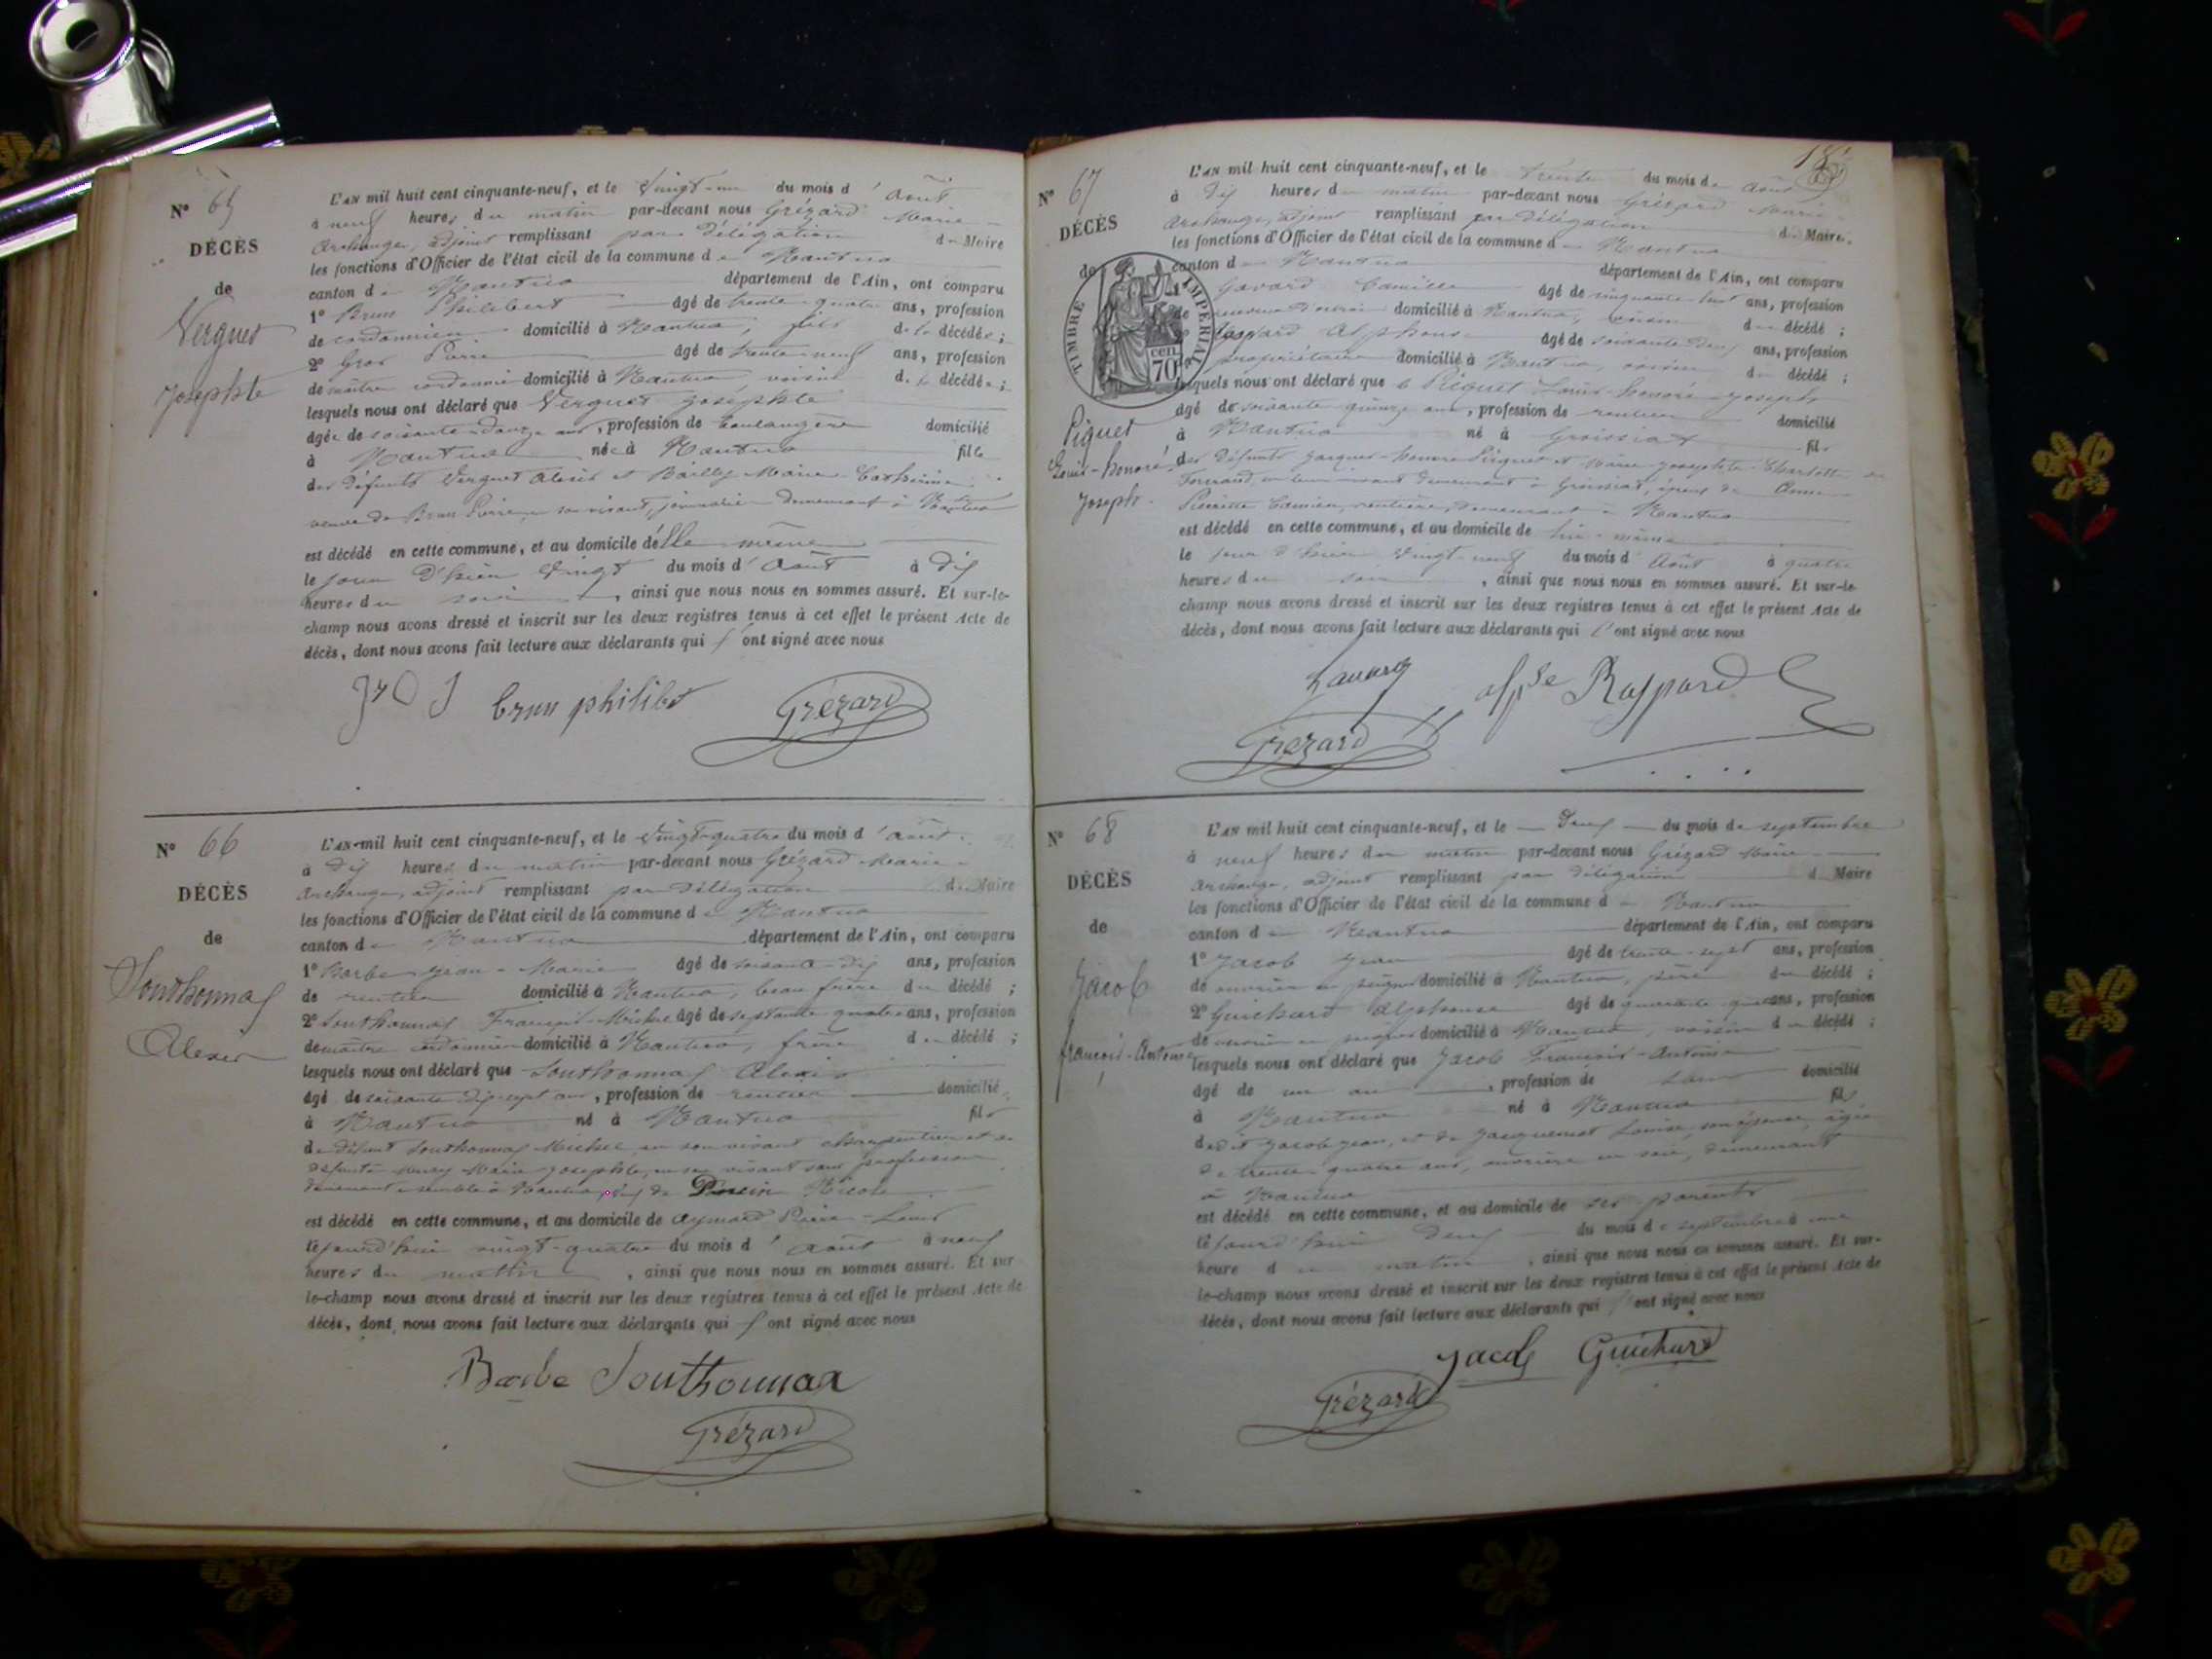 N° 65
DÉCÈS
de
Verguet
Josephte
L'AN mil huit cent cinquante-neuf, et le Vingt-un du mois d'août
à neuf heures du matin par-devant nous Grézard Marie-
Archange, adjoint remplissant par délégation du Maire
les fonctions d'Officier de l'état civil de la commune de Nantua
canton de Nantua département de l'Ain, ont comparu
1° Brun Philibert âgé de trente-quatre ans, profession
de cordonnier domicilié à Nantua, fils de la décédée;
2° Gros Pierre âgé de trente-neuf ans, profession
de maître cordonnier domicilié à Nantua, voisin de la décédée;
lesquels nous ont déclaré que Verguet Josephte
âgée de soixante-douze ans, profession de boulangère domicilié
à Nantua née à Nantua fille
des défunts Verguet Alexis et Bailly Marie-Catherine
veuve de Brun Pierre, en son vivant, journalier demeurant à Nantua
est décédé en cette commune, et au domicile d'elle même
le jour d'hier vingt du mois d'août à dix
heures du soir, ainsi que nous nous en sommes assuré. Et sur-le-
champ nous avons dressé et inscrit sur les deux registres tenus à cet effet le présent Acte de
décès, dont nous avons fait lecture aux déclarants qui l'ont signé avec nous
brun philibert Grézard
N° 66
DÉCÈS
de
Southonnax
Alexis
L'AN mil huit cent cinquante-neuf, et le vingt-quatre du mois d'août
à dix heures du matin par-devant nous Grézard Marie-
Archange, adjoint remplissant par délégation du Maire
les fonctions d'Officier de l'état civil de la commune de Nantua
canton de Nantua département de l'Ain, ont comparu
1° Barbe Jean-Marie âgé de soixante-dix ans, profession
de rentier domicilié à Nantua, beau frère du décédé;
2° Southonnax François-Michel âgé de septante quatre ans, profession
de maître cordonnier domicilié à Nantua, frère du décédé;
lesquels nous ont déclaré que Southonnax Alexis
âgé de soixante-dix-sept ans, profession de rentier domicilié
à Nantua né à Nantua fils
de défunt Southonnax Michel, en son vivant charpentier et de
défunte Marie-Josephte, en son vivant sans profession
demeurant ensemble à Nantua, Nicole
est décédé en cette commune, et au domicile de Aymard Pierre-Louis
le jourd'hui vingt-quatre du mois d'août à neuf
heures du matin, ainsi que nous nous en sommes assuré. Et sur
le-champ nous avons dressé et inscrit sur les deux registres tenus à cet effet le présent Acte de
décès, dont nous avons fait lecture aux déclarants qui l'ont signé avec nous
Barbe Southonnax
Grézard
N° 67
DÉCÈS
de
TIMBRE IMPÉRIAL
70 cen
Piquet
Louis-honoré
Joseph
L'AN mil huit cent cinquante-neuf, et le trente du mois de août
à dix heures du matin par-devant nous Grézard Marie-
Archange, adjoint remplissant par délégation du Maire
les fonctions d'Officier de l'état civil de la commune de Nantua
canton de Nantua département de l'Ain, ont comparu
1° Camille âgé de cinquante-huit ans, profession
domicilié à Nantua, voisin du décédé;
Raspard Alphonse âgé de soixante deux ans, profession
propriétaire domicilié à Nantua, voisin du décédé;
lesquels nous ont déclaré que Piquet Louis-honoré-Joseph
âgé de soixante quinze ans, profession de rentier domicilié
à Nantua né à Groissiat fils
des défunts Jacques-honoré Piquet et Marie-Josephte-Charlotte
en leur vivant demeurant à Groissiat, époux de Anne-
Pierrette rentière, demeurant à Nantua
est décédé en cette commune, et au domicile de lui-même
le jour d'hier vingt-neuf du mois d'août à quatre
heures du soir, ainsi que nous nous en sommes assuré. Et sur-le-
champ nous avons dressé et inscrit sur les deux registres tenus à cet effet le présent Acte de
décès, dont nous avons fait lecture aux déclarants qui l'ont signé avec nous
Alpse Raspard
Grézard
N° 68
DÉCÈS
de
Jacob
françois-Antoine
L'AN mil huit cent cinquante-neuf, et le deux du mois de septembre
à neuf heures du matin par-devant nous Grézard Marie-
Archange, adjoint remplissant par délégation du Maire
les fonctions d'Officier de l'état civil de la commune de Nantua
canton de Nantua département de l'Ain, ont comparu
1° Jacob Jean âgé de trente-sept ans, profession
de ouvrier en peignes domicilié à Nantua, père du décédé;
2° Guichard Alphonse âgé de quarante ans, profession
de ouvrier en peignes domicilié à Nantua, voisin du décédé;
lesquels nous ont déclaré que Jacob François-Antoine
âgé de un an, profession de domicilié
à Nantua né à Nantua fils
dudit Jacob Jean, et de Jacquemet Louise, son épouse, âgée
de trente-quatre ans, ouvrière en soie, demeurant
à Nantua
est décédé en cette commune, et au domicile de ses parents
le jourd'hui deux du mois de septembre à une
heure du matin, ainsi que nous nous en sommes assuré. Et sur-
le-champ nous avons dressé et inscrit sur les deux registres tenus à cet effet le présent Acte de
décès, dont nous avons fait lecture aux déclarants qui l'ont signé avec nous
Jacob Guichard
Grézard